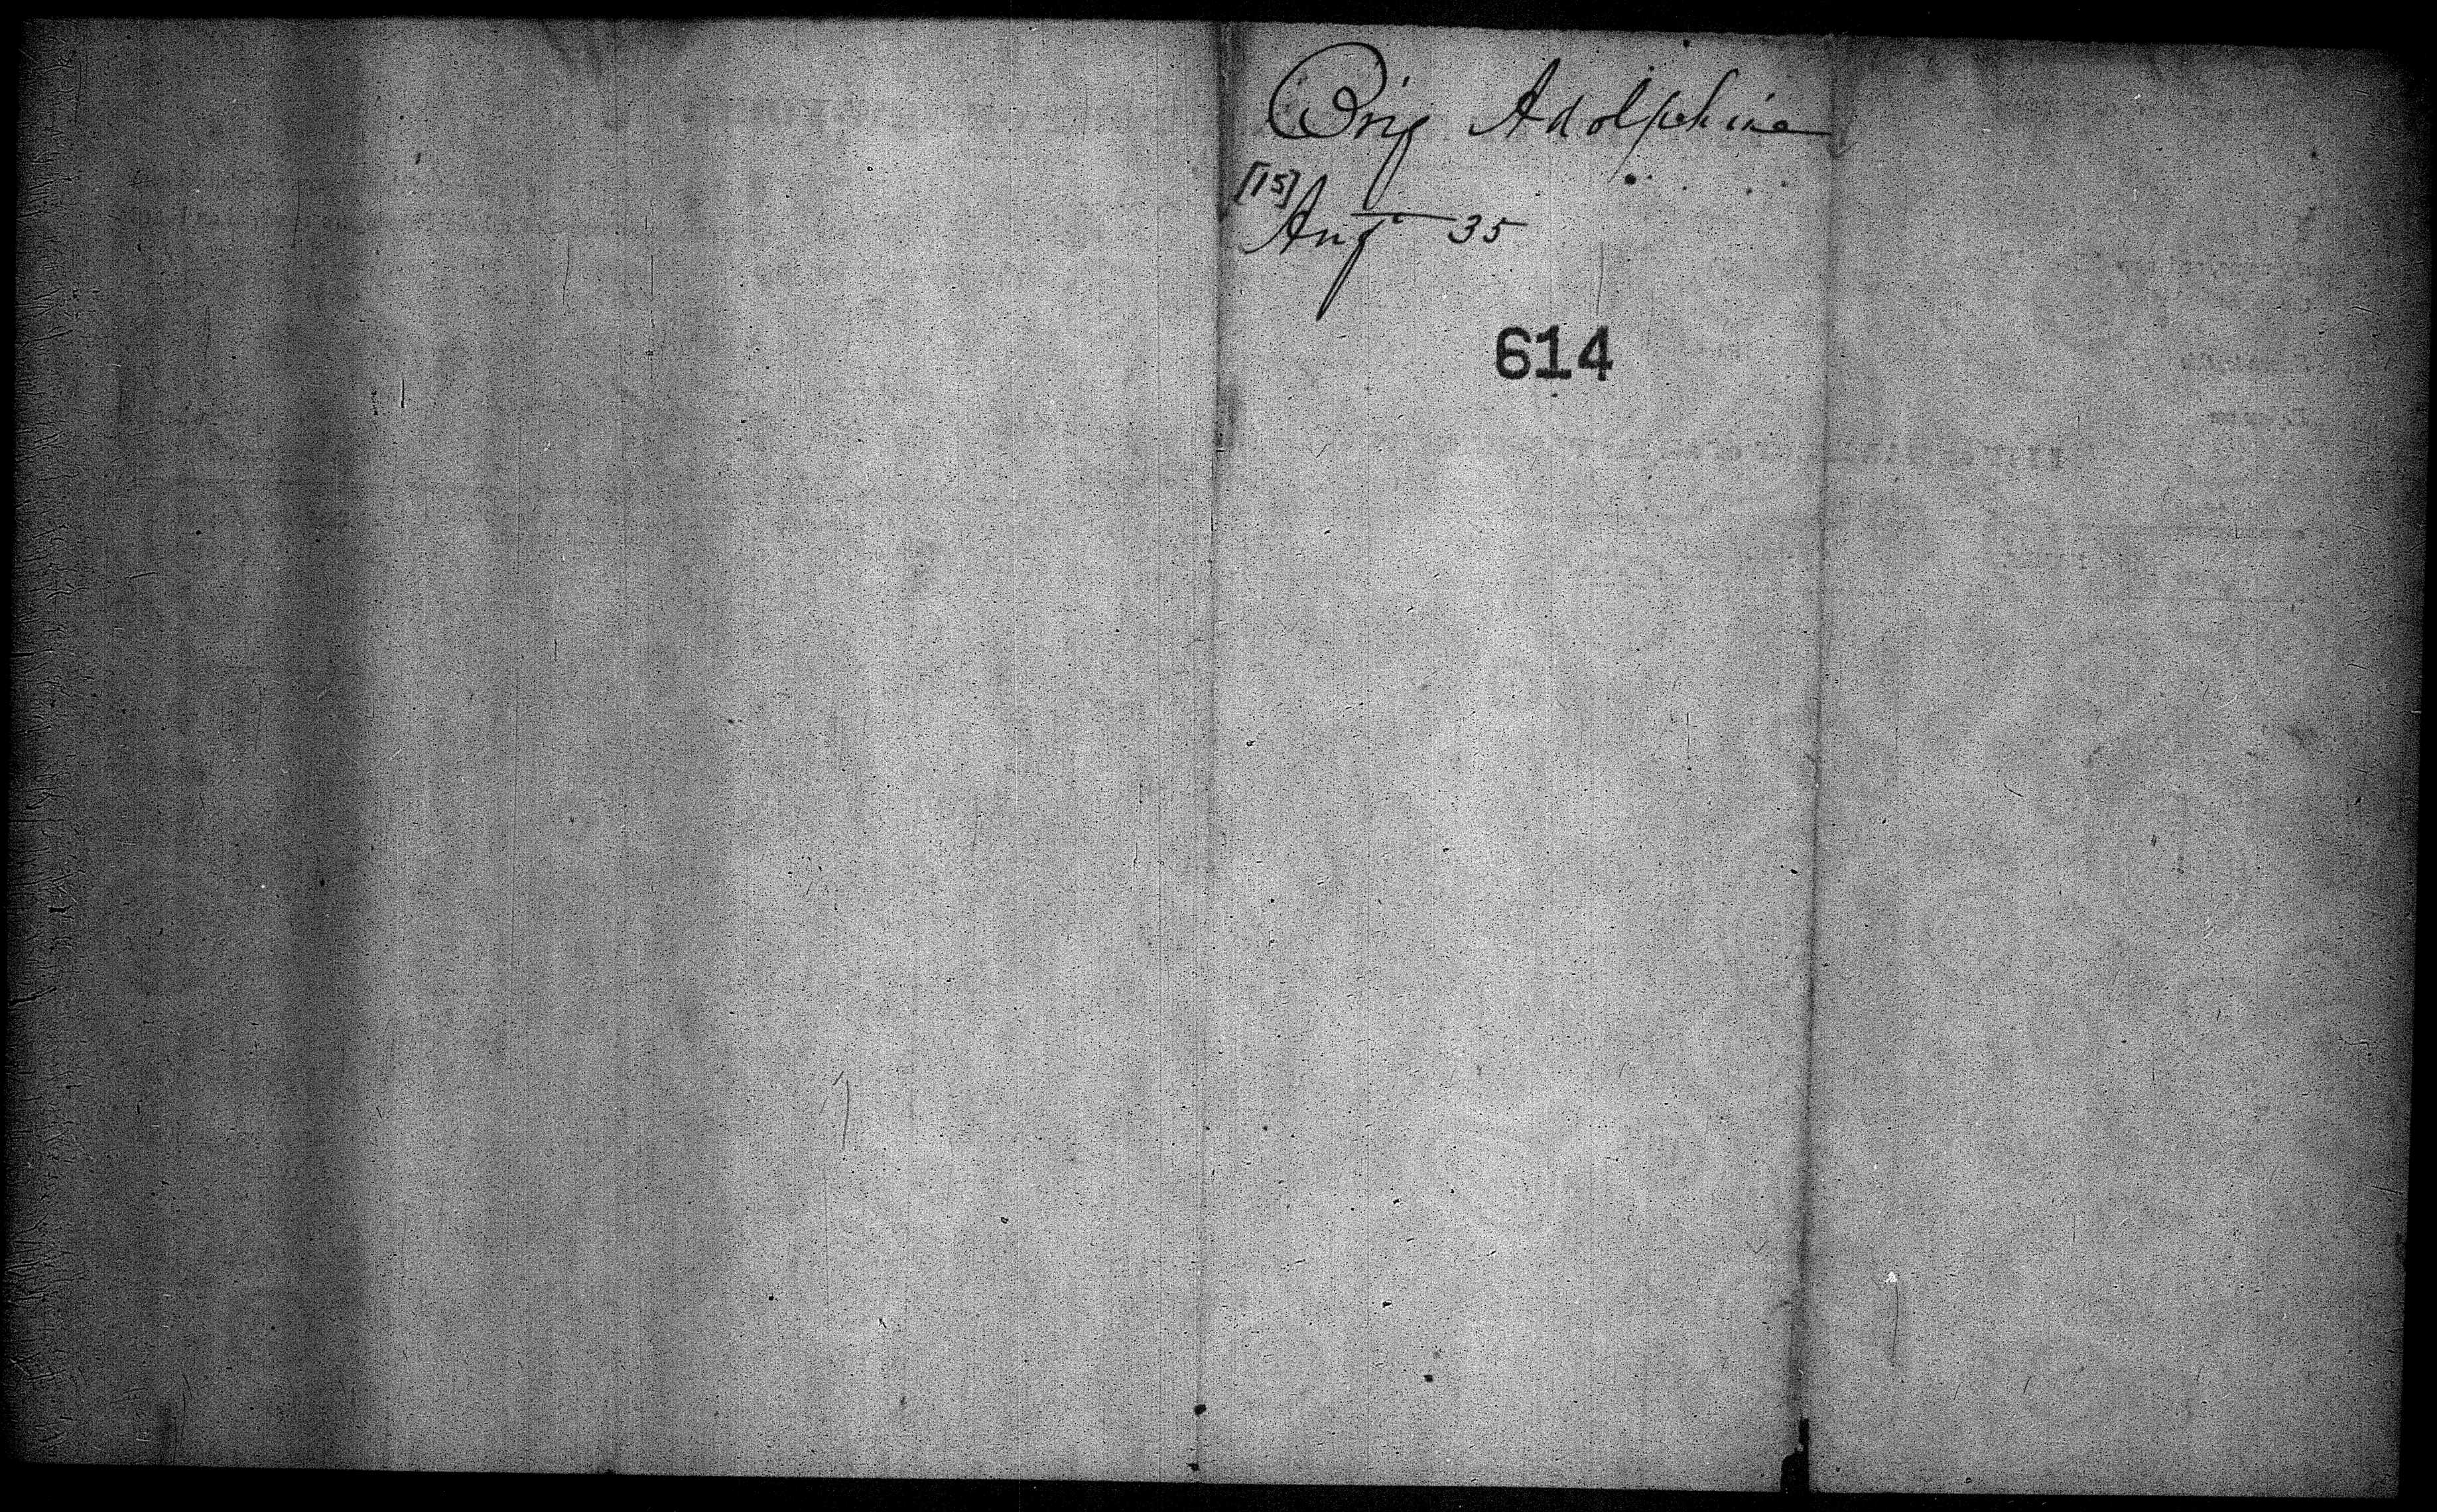 Brig Adolphine
[15]
Aug 35
614